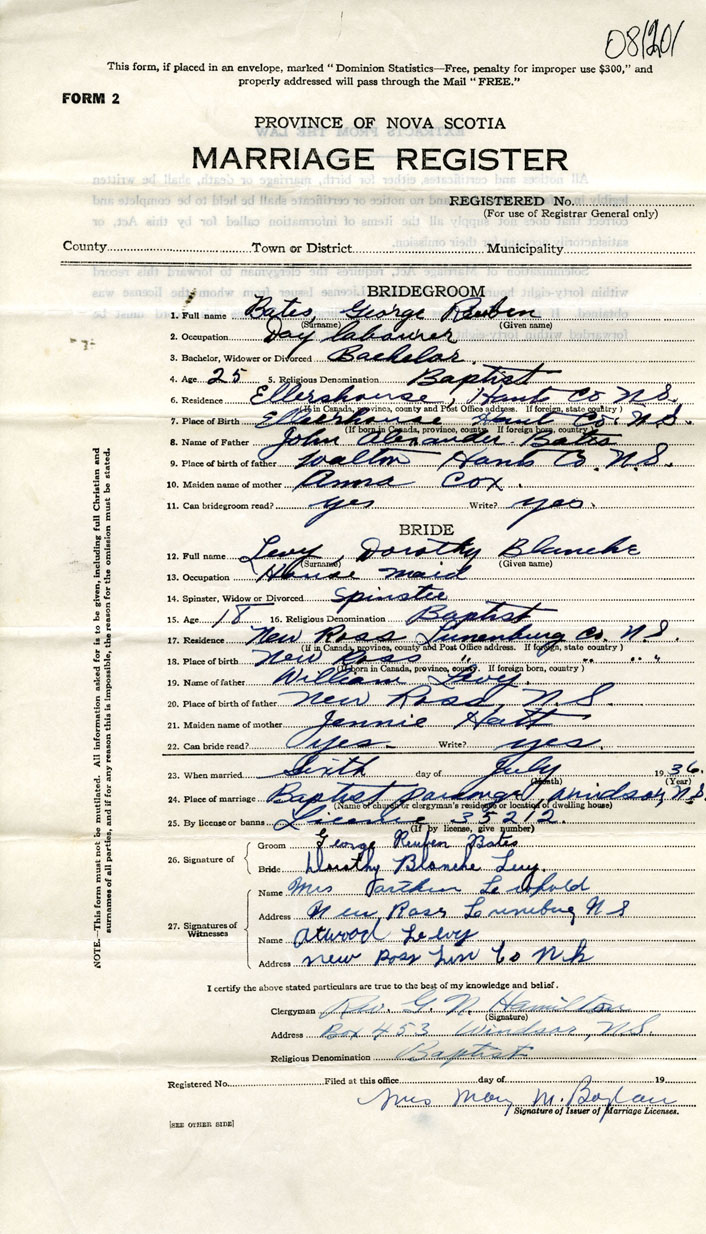 This form, if placed in an envelope, marked "Dominion Statistics—Free, penalty for improper use $300," and
properly addressed will pass through the Mail "FREE."
FORM 2
PROVINCE OF NOVA SCOTIA
MARRIAGE REGISTER
REGISTERED No.
(For use of Registrar General only)
County Town or District Municipality
BRIDEGROOM
1. Full name Bates, George Reuben
(Surname) (Given name)
2. Occupation Day labourer
3. Bachelor, Widower or Divorced Bachelor.
4. Age 25 5. Religious Denomination Baptist
6. Residence Ellershouse, Hants Co N.S.
(If in Canada, province, county and Post Office address. If foreign, state country)
7. Place of Birth Ellershouse Hants Co. N.S.
(If born in Canada, province, county. If foreign born, country)
8. Name of Father John Alexander Bates
9. Place of birth of father Walton Hants Co. N.S.
10. Maiden name of mother Anna Cox.
11. Can bridegroom read? yes Write? yes.
BRIDE
12. Full name Levy, Dorothy Blanche
(Surname) (Given name)
13. Occupation House maid
14. Spinster, Widow or Divorced Spinster
15. Age 18 16. Religious Denomination Baptist
17. Residence New Ross Lunenburg Co. N.S.
(If in Canada, province, county and Post Office address. If foreign, state country)
18. Place of birth New Ross " " "
(If born in Canada, province, county. If foreign born, country)
19. Name of father William Levy.
20. Place of birth of father New Ross, N.S.
21. Maiden name of mother Jennie Hatt
22. Can bride read? yes Write? yes.
23. When married Sixth day of July 1936.
(Month) (Year)
24. Place of marriage Baptist parsonage, Windsor, N.S.
(Name of church or clergyman's residence or location of dwelling house)
25. By license or banns License 35212.
(If by license, give number)
26. Signature of
Groom George Reuben Bates
Bride Dorothy Blanche Levy.
27. Signatures of Witnesses
Name Mrs Leopold
Address New Ross Lunenburg N S
Name Atwood Levy
Address New Ross Lun Co N.S
I certify the above stated particulars are true to the best of my knowledge and belief.
Clergyman Rev. G. N. Hamilton
(Signature)
Address Box 453 Windsor, N.S.
Religious Denomination Baptist
Registered No. Filed at this office day of 19
Mrs May M.
Signature of Issuer of Marriage Licenses.
[SEE OTHER SIDE]
NOTE.—This form must not be mutilated. All information asked for is to be given, including full Christian and
surnames of all parties, and if for any reason this is impossible, the reason for the omission must be stated.